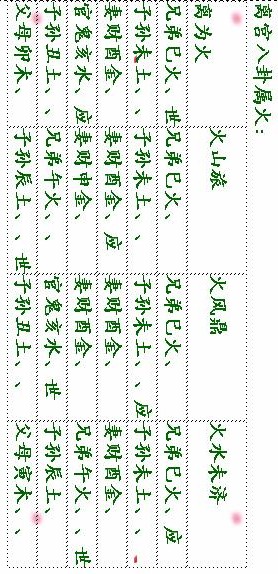 离宫八卦属火：
离为火
兄弟巳火、世
子孙未土、、
妻财酉金、
官鬼亥水、应
子孙丑土、、
父母卯木、
火山旅
兄弟巳火、
子孙未土、、
妻财酉金、应
妻财申金、
兄弟午火、、
子孙辰土、、世
火风鼎
兄弟巳火、
子孙未土、、应
妻财酉金、
妻财酉金、
官鬼亥水、世
子孙丑土、、
火水未济
兄弟巳火、应
子孙未土、、
妻财酉金、
兄弟午火、、世
子孙辰土、
父母寅木、、